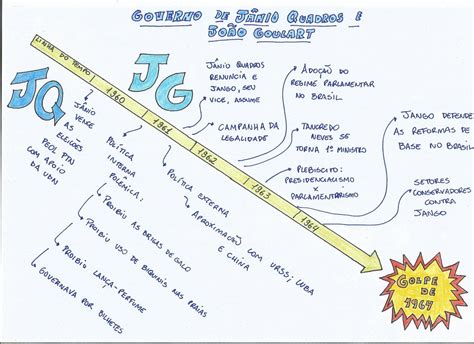 GOVERNO DE JÂNIO QUADROS E
JOÃO GOULART
LINHA DO TEMPO
1960
1961
1962
1963
1964
JQ
JG
JÂNIO VENCE
AS
ELEIÇÕES
PELO PTN
COM APOIO
DA UDN
JÂNIO QUADROS
RENUNCIA E
JANGO, SEU
VICE, ASSUME
CAMPANHA DA
LEGALIDADE
ADOÇÃO DO
REGIME PARLAMENTAR
NO BRASIL
TANCREDO
NEVES SE
TORNA 1º MINISTRO
PLEBISCITO:
PRESIDENCIALISMO
X
PARLAMENTARISMO
JANGO DEFENDE
AS REFORMAS DE
BASE NO BRASIL
SETORES
CONSERVADORES
CONTRA
JANGO
POLÍTICA
INTERNA
POLÊMICA:
PROIBIU AS BRIGAS DE GALO
PROIBIU USO DE BIQUINIS NAS PRAIAS
PROIBIU LANÇA-PERFUME
GOVERNAVA POR BILHETES
POLÍTICA EXTERNA
APROXIMAÇÃO COM URSS, CUBA
E CHINA
GOLPE
DE
1964